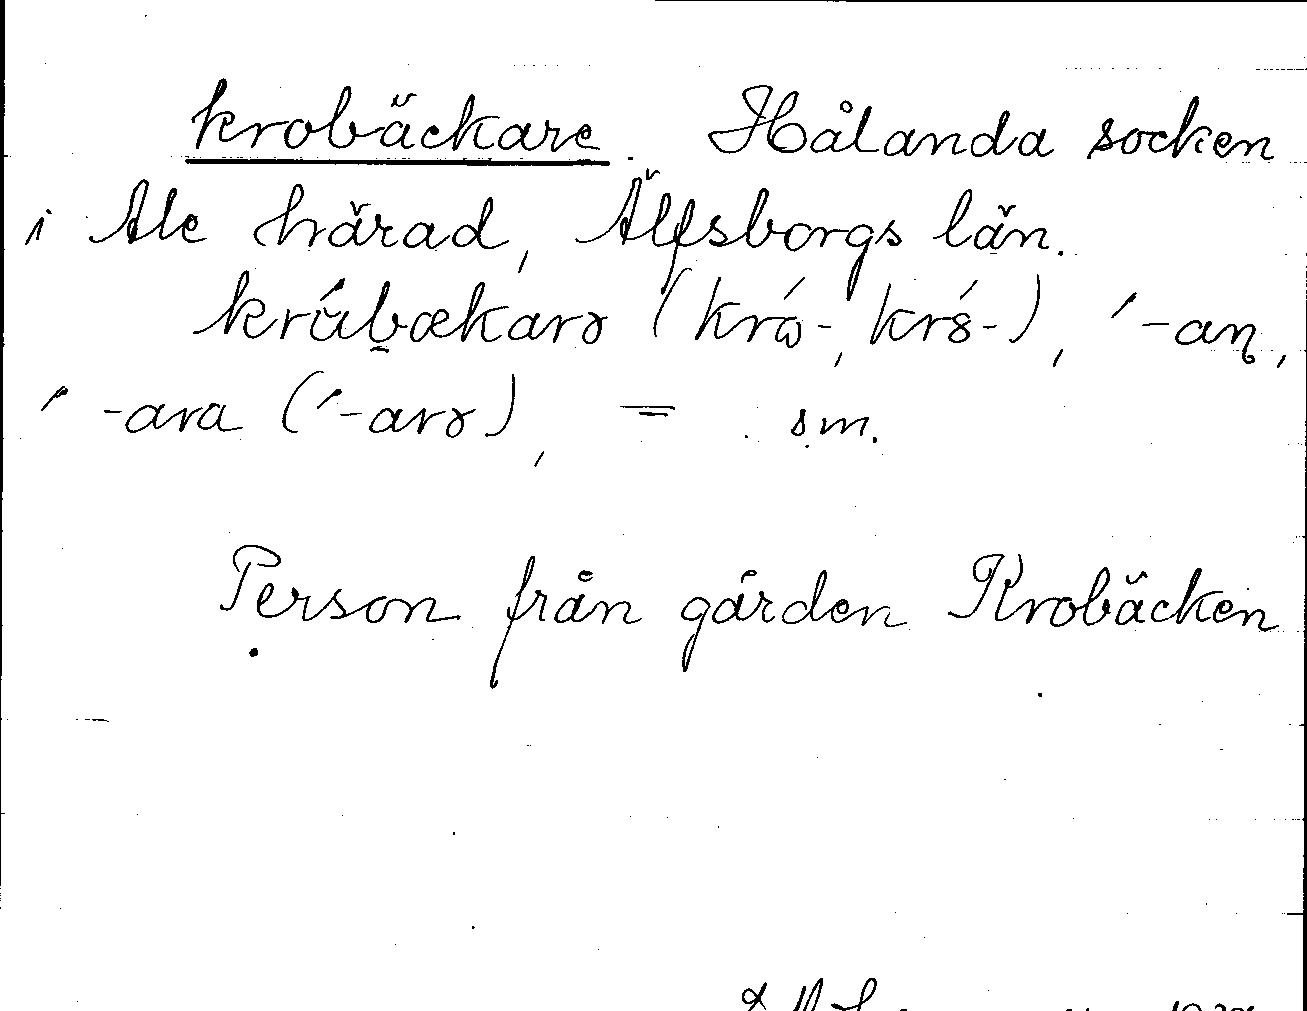 krobäckare. Hålanda socken
i Ale härad, Älfsborgs län.
krúbækarɘ (krɷ́-, kró-), ´-aɳ,
´-ara (´-arɘ), = sm.
Person från gården Krobäcken